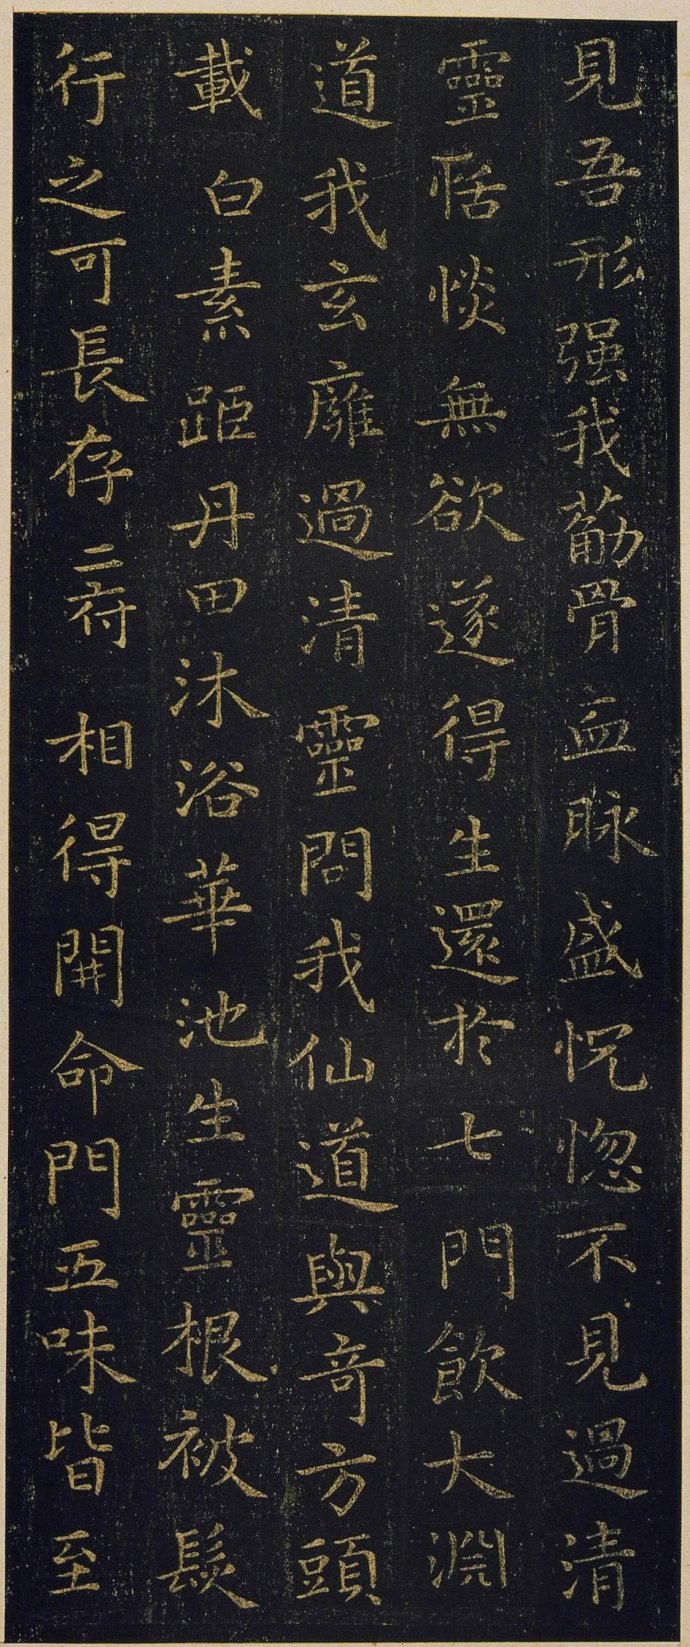 見吾形强我葪骨血脉盛恍惚不見過清
靈恬惔無欲遂得生還於七門飲大淵
道我玄廱過清靈問我仙道與奇方頭
載白素距丹田沐浴華池生靈根被髮
行之可長存二符相得開命門五味皆至